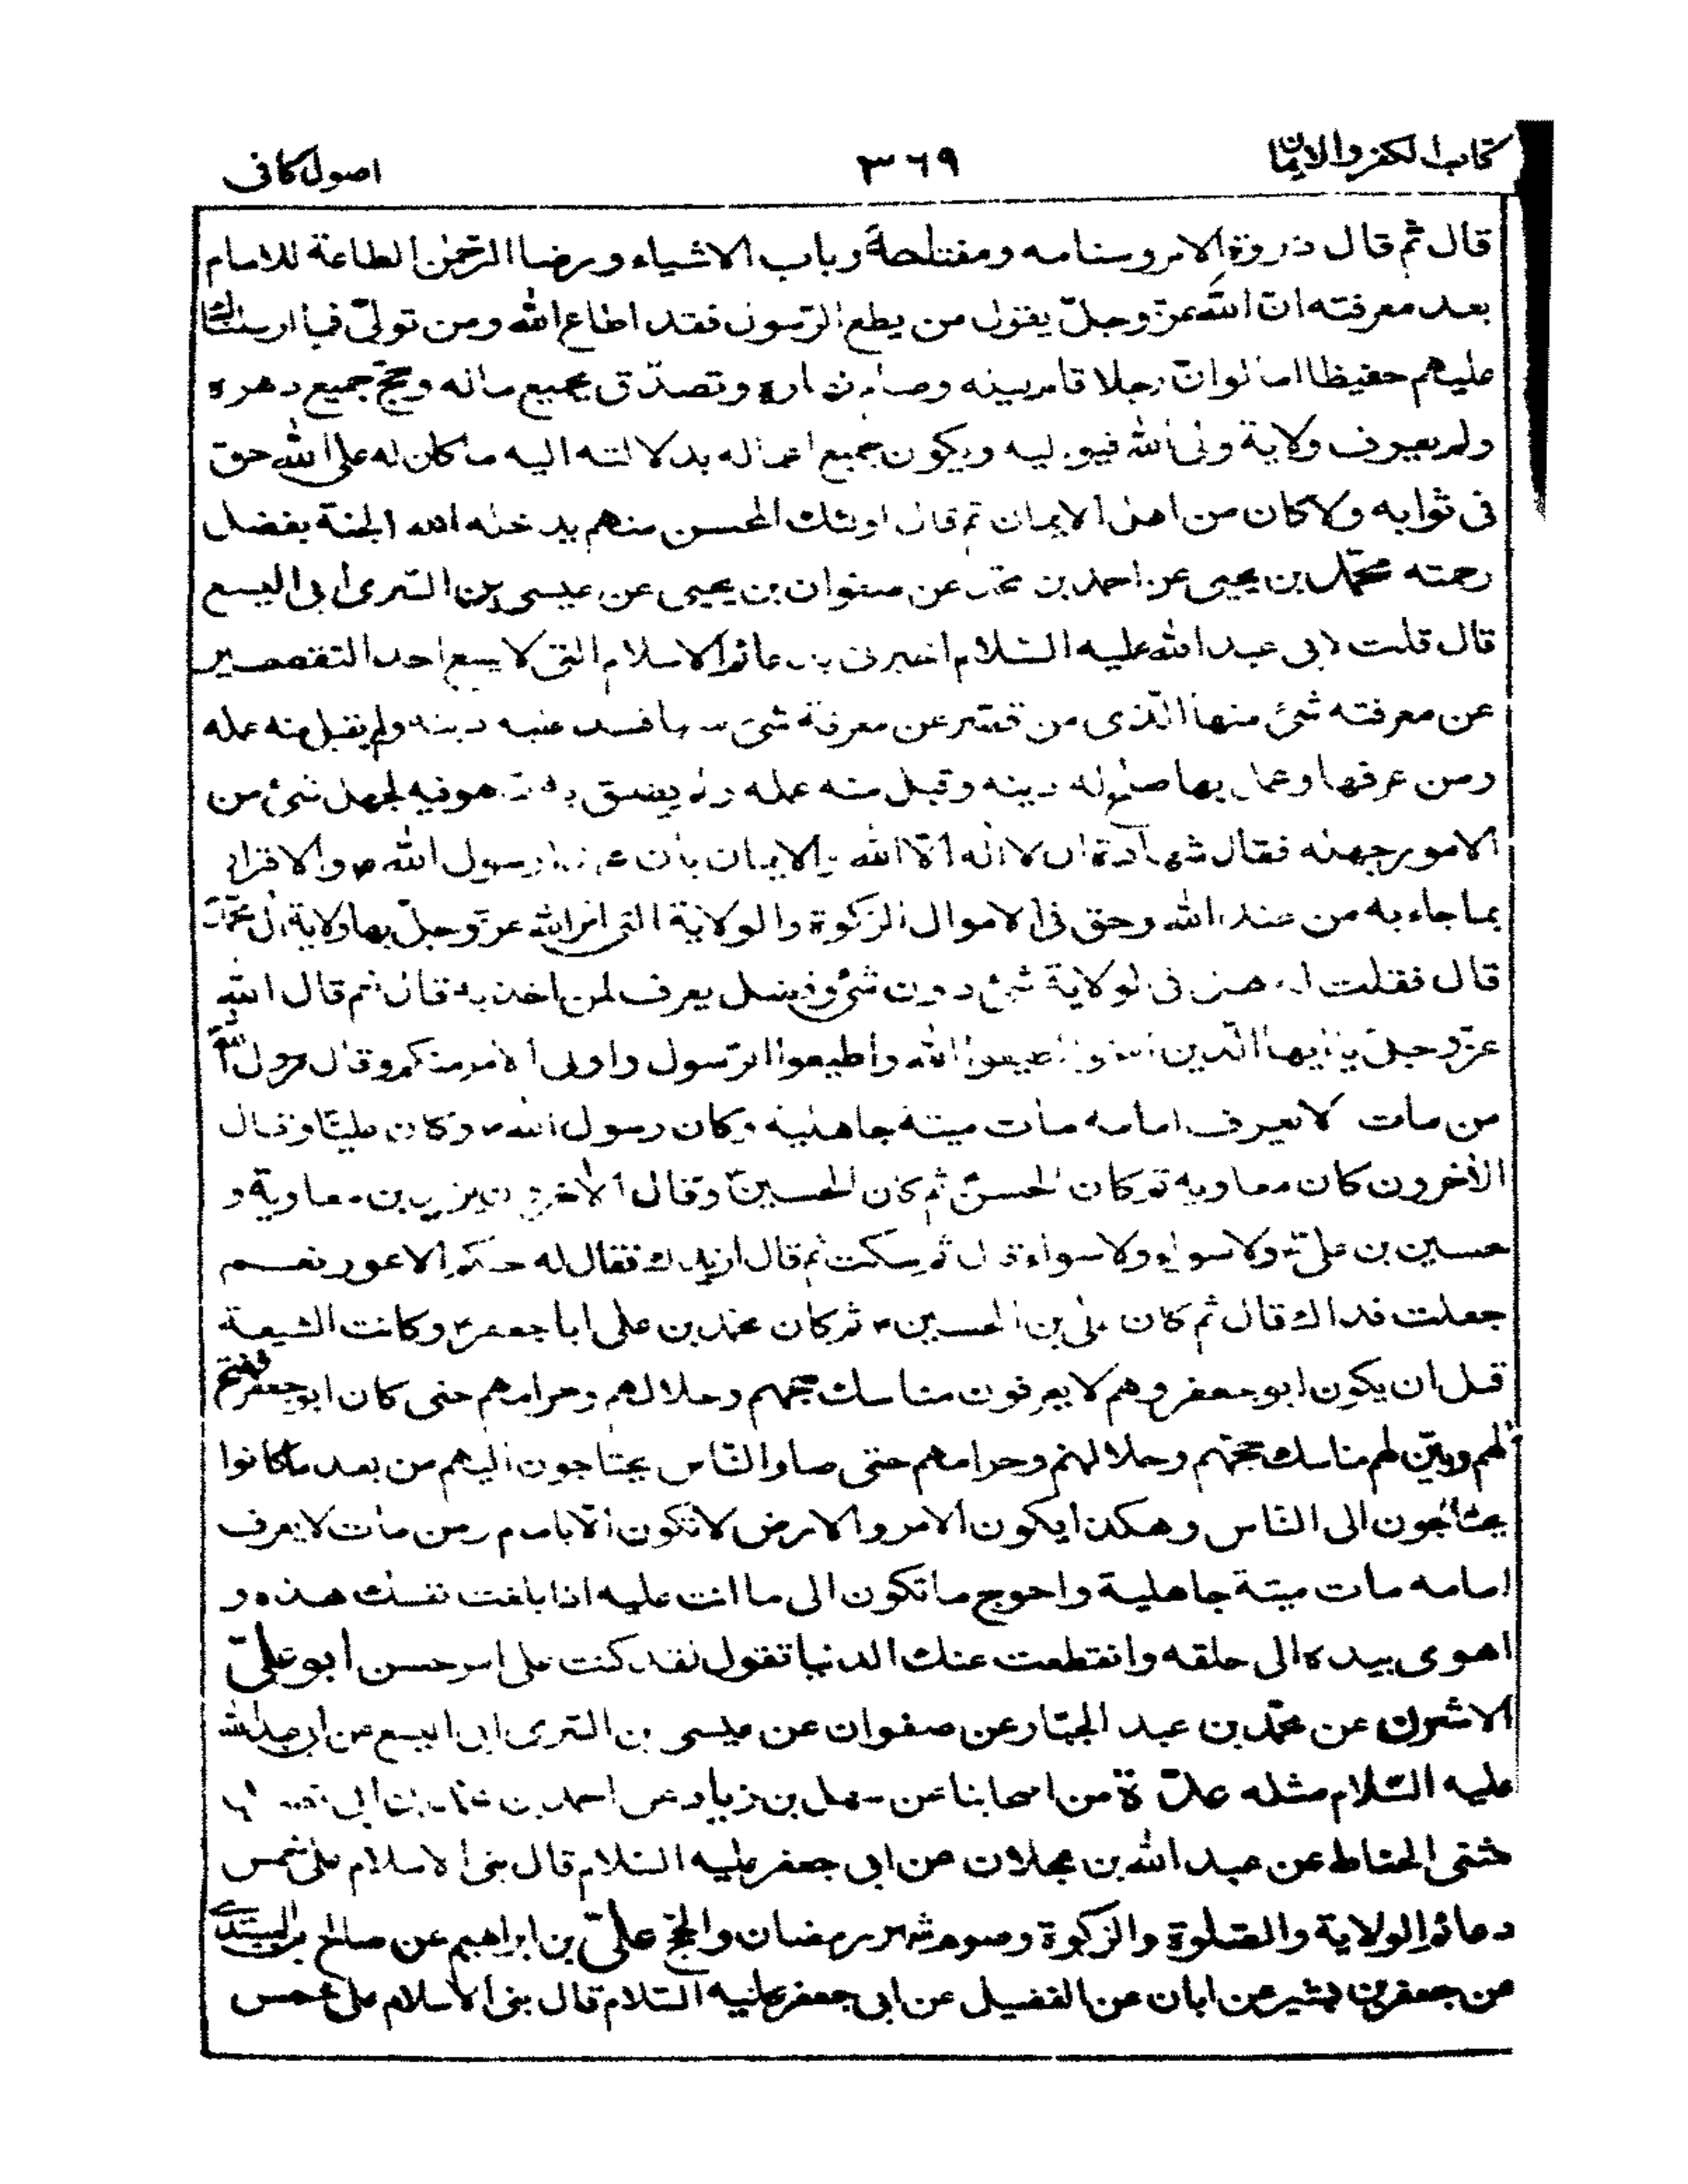 كتاب الكفر والايمان ٣٦٩ اصول كافى
قال ثم قال ذروة الامر وسنامه ومفتاحه وباب الاشياء ورضا الرحمن الطاعة للامام
بعد معرفته ان الله عز وجل يقول من يطع الرسول فقد اطاع الله ومن تولى فما ارسلناك
عليهم حفيظا اما لو ان رجلا قام ليله وصام نهاره وتصدق بجميع ماله وحج جميع دهره
ولم يعرف ولاية ولى الله فيواليه ويكون جميع اعماله بدلالته اليه ما كان له على الله حق
فى ثوابه ولا كان من اهل الايمان ثم قال اولئك المحسن منهم يدخله الله الجنة بفضل
رحمته محمد بن يحيى عن احمد بن محمد عن صفوان بن يحيى عن عيسى بن السرى ابى اليسع
قال قلت لابى عبد الله عليه السلام اخبرنى بدعائم الاسلام التى لا يسع احد التقصير
عن معرفته شئ منها الذى من قصر عن معرفة شئ منها فسد عليه دينه ولم يقبل منه عمله
ومن عرفها وعمل بها صلح له دينه وقبل منه عمله ولم يضق به هو فيه لجهل شئ من
الامور جهله فقال شهادة ان لا اله الا الله والايمان بان محمدا رسول الله ص والاقرار
بما جاء به من عند الله وحق فى الاموال الزكوة والولاية التى امر الله عز وجل بها ولاية ال محمد
قال فقلت له هل فى الولاية شئ دون شئ وفضل يعرف لمن اخذ به قال نعم قال الله
عز وجل يا ايها الذين امنوا اطيعوا الله واطيعوا الرسول واولى الامر منكم وقال رسول الله
من مات لا يعرف امامه مات ميتة جاهلية وكان رسول الله ص وكان عليا وقال
الآخرون كان معاوية ثم كان الحسن ثم كان الحسين وقال الآخرون يزيد بن معاوية و
حسين بن على ولا سواء ولا سواء قال ثم سكت ثم قال ازيدك فقال له حكم الاعور نعم
جعلت فداك قال ثم كان على بن الحسين ثم كان محمد بن على ابا جعفر وكانت الشيعة
قبل ان يكون ابو جعفر وهم لا يعرفون مناسك حجهم وحلالهم وحرامهم حتى كان ابو جعفر ففتح
لهم وبين لهم مناسك حجهم وحلالهم وحرامهم حتى صار الناس يحتاجون اليهم من بعد ما كانوا
يحتاجون الى الناس وهكذا يكون الامر والارض لا تكون الا بامام ومن مات لا يعرف
امامه مات ميتة جاهلية واحوج ما تكون الى ما انت عليه اذا بلغت نفسك هذه و
اهوى بيده الى حلقه وانقطعت عنك الدنيا تقول لقد كنت على امر حسن ابو على
الاشعرى عن محمد بن عبد الجبار عن صفوان عن عيسى بن السرى ابى اليسع عن ابى عبد الله
عليه السلام مثله عدة من اصحابنا عن سهل بن زياد عن احمد بن محمد بن ابى
مثنى الحناط عن عبد الله بن عجلان عن ابى جعفر عليه السلام قال بنى الاسلام على خمس
دعائم الولاية والصلوة والزكوة وصوم شهر رمضان والحج على بن ابراهيم عن صالح بن السندى
عن جعفر بن بشير عن ابان عن الفضيل عن ابى جعفر عليه السلام قال بنى الاسلام على خمس